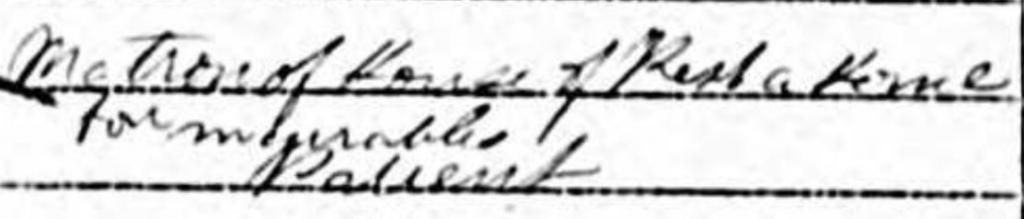 Matron of House of Rest a Home
for incurables
Patient